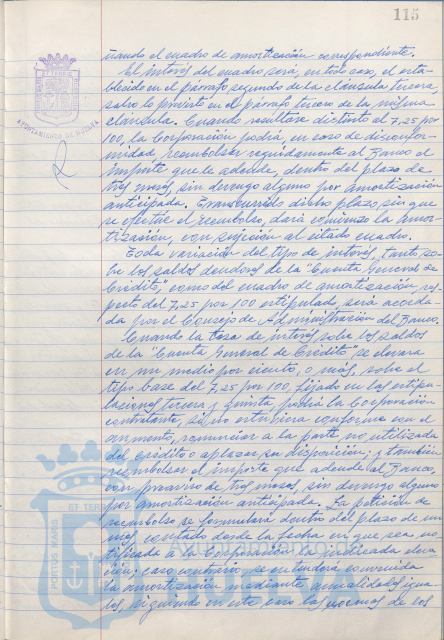 115
trando el cuadro de amortización correspondiente.
El interés del cuadro será, en todo caso, el esta-
blecido en el párrafo segundo de la cláusula tercera,
salvo lo previsto en el párrafo tercero de la misma
cláusula. Cuando resultare distinto al 7,25 por
100, la Corporación podrá, en caso de disconfor-
midad, reembolsar seguidamente al Banco el
importe que le adeude, dentro del plazo de
tres meses, sin devengo alguno por amortización
anticipada. Transcurrido dicho plazo sin que
se efectúe el reembolso, dará comienzo la amor-
tización, con sujeción al citado cuadro.
Toda variación del tipo de interés, tanto so-
bre los saldos deudores de la "Cuenta General de
Crédito", como del cuadro de amortización, res-
pecto del 7,25 por 100 estipulado, será acorda-
da por el Consejo de Administración del Banco.
Cuando la tasa de interés sobre los saldos
de la "Cuenta General de Crédito" se elevara
en un medio por ciento, o más, sobre el
tipo base del 7,25 por 100, fijado en las estipu-
laciones tercera y quinta, podrá la Corporación
contratante, si no estuviera conforme con el
aumento, renunciar a la parte no utilizada
del crédito o aplazar su disposición; y también
reembolsar el importe que adeude al Banco,
con preaviso de tres meses, sin devengo alguno
por amortización anticipada. La petición de
reembolso se formulará dentro del plazo de un
mes, contado desde la fecha en que sea no-
tificada a la Corporación la indicada eleva-
ción; caso contrario, se entenderá convenida
la amortización mediante anualidades igua-
les, siguiendo en este caso las normas de los
AYUNTAMIENTO DE HUELVA
PORTUS MARIS
ET TERRAE
HUELVA